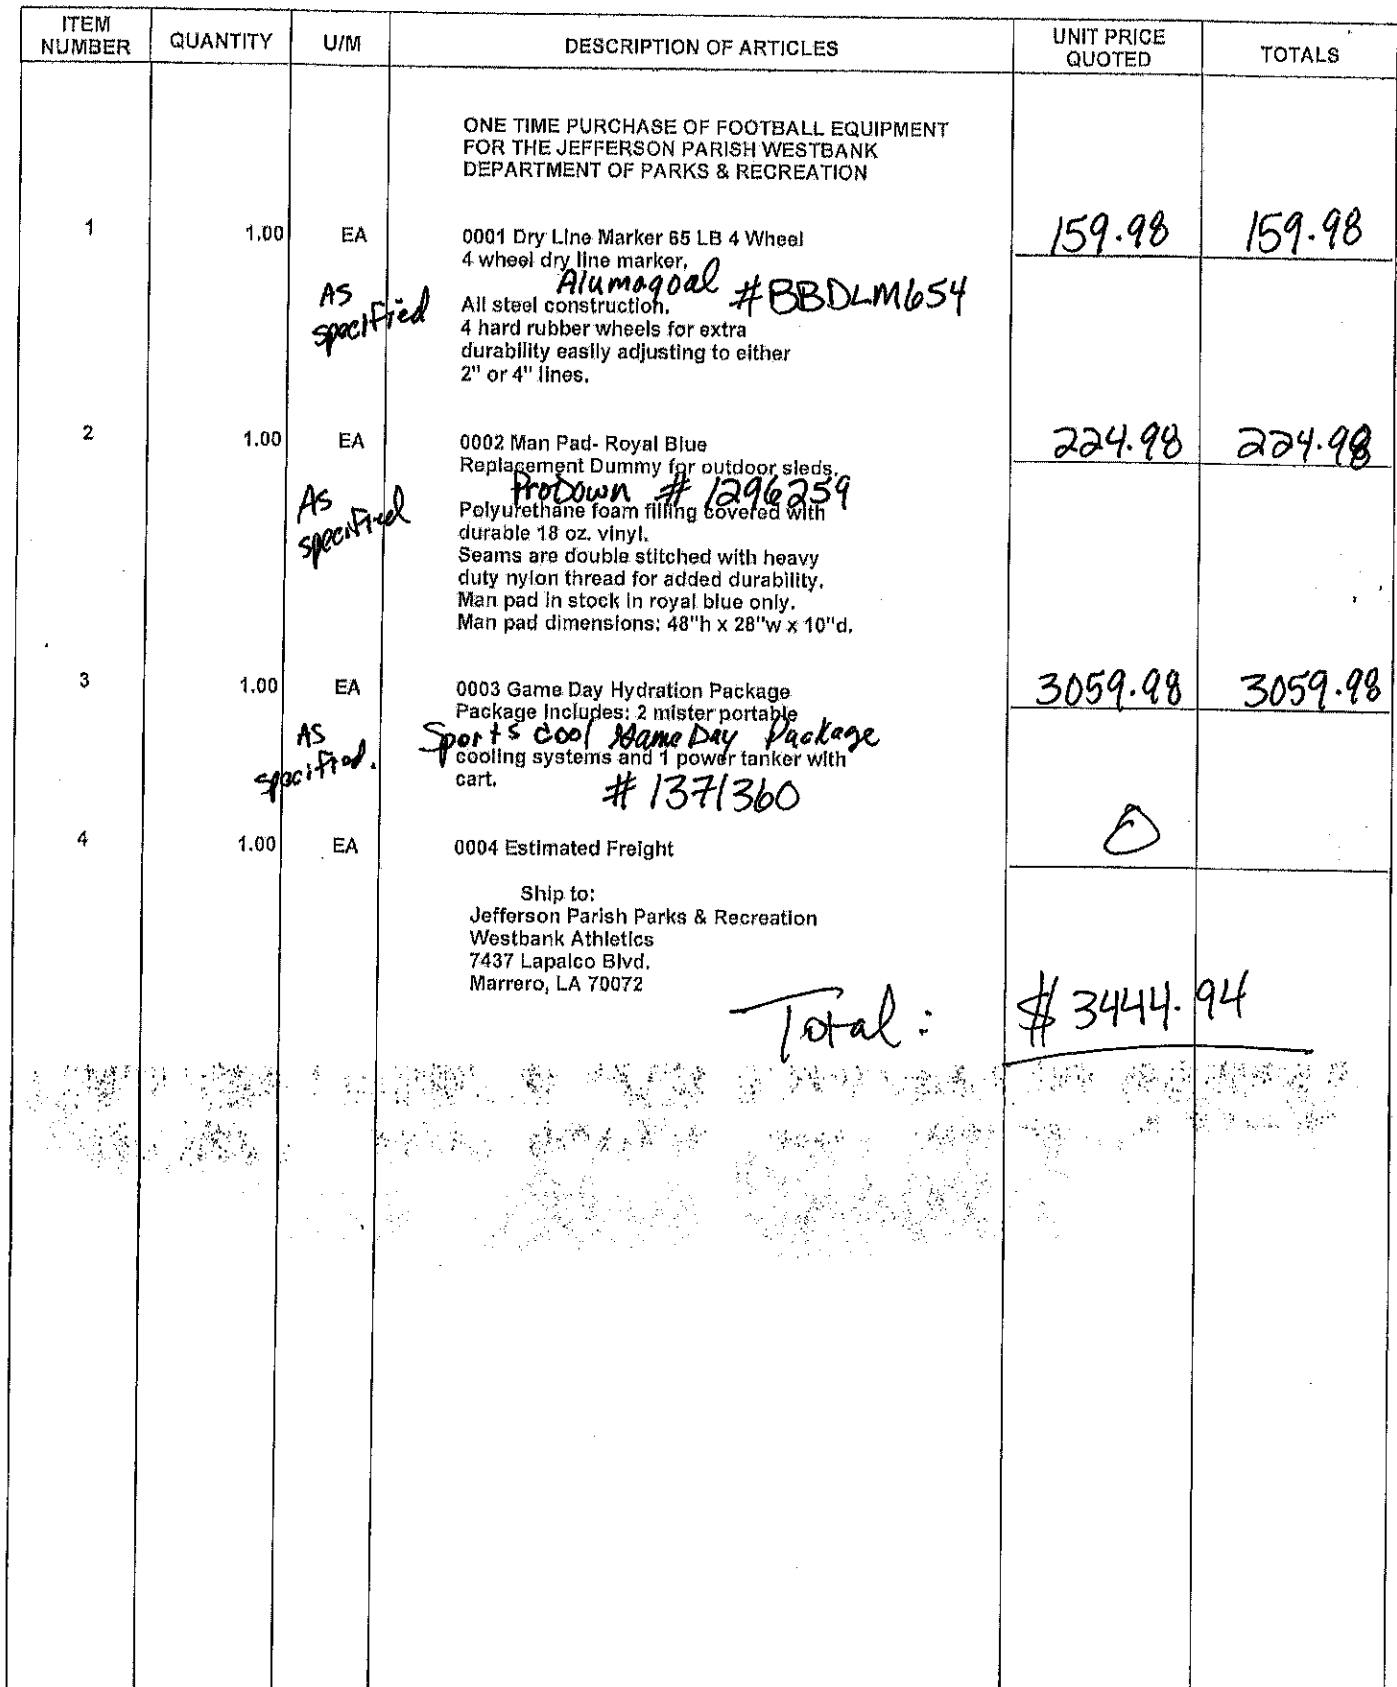 ITEM NUMBER QUANTITY U/M DESCRIPTION OF ARTICLES UNIT PRICE QUOTED TOTALS
ONE TIME PURCHASE OF FOOTBALL EQUIPMENT
FOR THE JEFFERSON PARISH WESTBANK
DEPARTMENT OF PARKS & RECREATION
1 1.00 EA 0001 Dry Line Marker 65 LB 4 Wheel 159.98 159.98
4 wheel dry line marker,
Alumagoal #BBDLM654
As specified
All steel construction.
4 hard rubber wheels for extra
durability easily adjusting to either
2" or 4" lines.
2 1.00 EA 0002 Man Pad- Royal Blue 224.98 224.98
Replacement Dummy for outdoor sleds.
ProDown # 1296259
As specified
Polyurethane foam filling covered with
durable 18 oz. vinyl.
Seams are double stitched with heavy
duty nylon thread for added durability.
Man pad in stock in royal blue only.
Man pad dimensions: 48"h x 28"w x 10"d.
3 1.00 EA 0003 Game Day Hydration Package 3059.98 3059.98
Package Includes: 2 mister portable
As specified. Sports Cool Game Day Package
cooling systems and 1 power tanker with
cart.
# 1371360
4 1.00 EA 0004 Estimated Freight 0
Ship to:
Jefferson Parish Parks & Recreation
Westbank Athletics
7437 Lapalco Blvd.
Marrero, LA 70072
Total: $3444.94